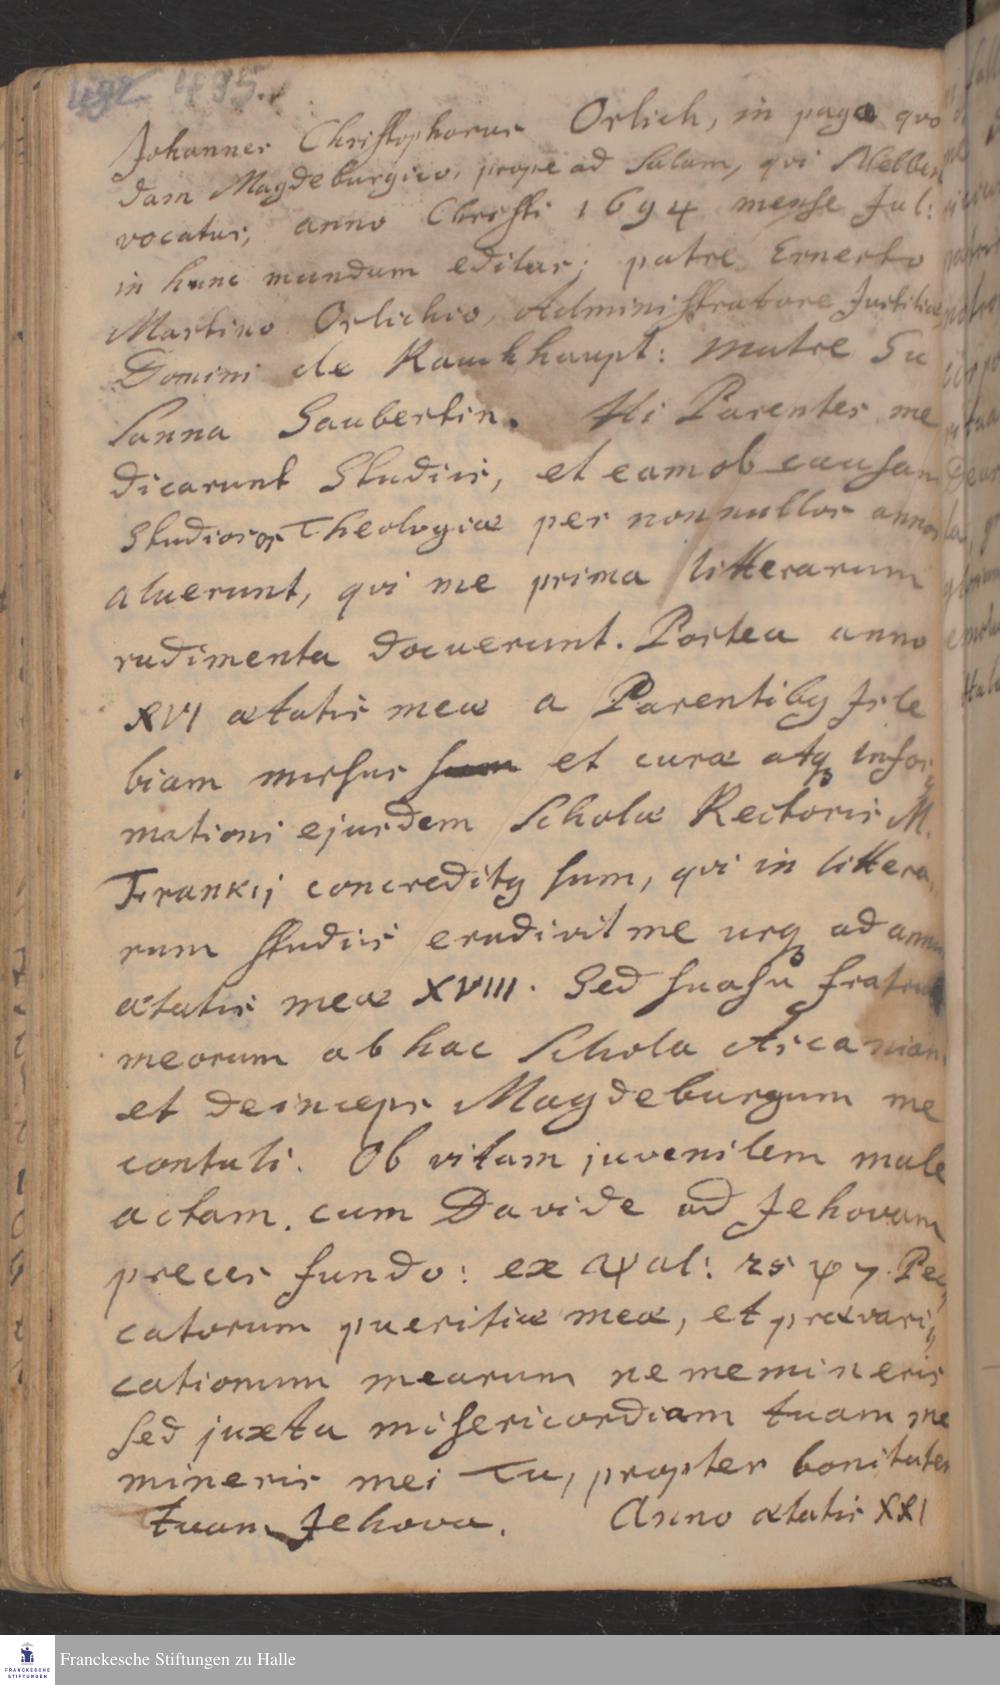 492 495.
Johannes Christophorus Orlich, in pago quo
dam Magdeburgico, prope ad Salam, qui Nelben
vocatur, anno Christi 1694 mense Jul:
in hunc mundum editus; patre Ernesto
Martino Orlichio, Administratore Justitiae
Domini de Rauchhaupt: matre Su
sanna Saubertin. Hi Parentes me
dicarunt Studiis, et eam ob causam
Studiosos Theologiae per nonnullos annos
aluerunt, qui me prima litterarum
rudimenta docuerunt. Postea anno
XVI aetatis meae a Parentibq Isle
biam missus et curae atq infor
mationi ejusdem Scholae Rectoris M.
Frankij concreditq sum, qui in littera
rum studiis erudivit me usq ad annum
aetatis meae XVIII. Sed suasu fratrum
meorum ab hac Schola Ascaniam
et deinceps Magdeburgum me
contuli. Ob vitam juvenilem male
actam, cum Davide ad Jehovam
preces fundo: ex ψal: 25 ψ 7. Pec
catorum pueritiae meae, et praevari
cationum mearum ne memineris
sed juxta misericordiam tuam me
mineris mei Tu, propter bonitatem
tuam Jehova. Anno aetatis XXI
Franckesche Stiftungen zu Halle
FRANCKESCHE
STIFTUNGEN